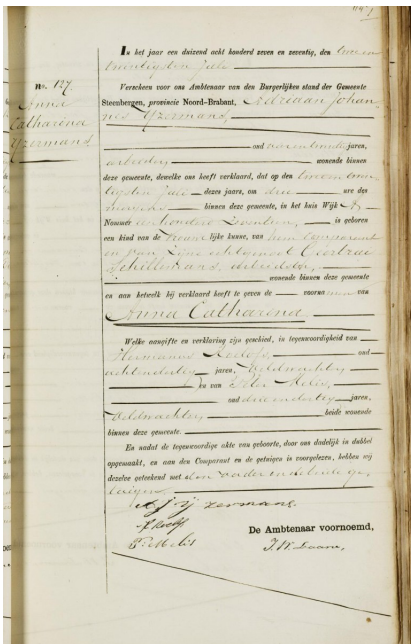 In het jaar een duizend acht honderd zeven en zeventig, den twee en
twintigsten Julij
No. 127.
Anna
Catharina
Yzermans
Verscheen voor ons Ambtenaar van den Burgerlijken stand der Gemeente
Steenbergen, provincie Noord-Brabant, Adriaan Johan-
nes Yzermans,
oud jaren,
arbeider, wonende binnen
deze gemeente, dewelke ons heeft verklaard, dat op den twee en twin-
tigsten Julij dezes jaars, om drie ure des
morgens binnen deze gemeente, in het huis Wijk A
Nommer een honderd zeventien, is geboren
een kind van de vrouwelijke kunne, van hem comparant
en van zijne echtgenoot Geertrui
arbeidster,
wonende binnen deze gemeente
en aan hetwelk hij verklaard heeft te geven de voornamen van
Anna Catharina
Welke aangifte en verklaring zijn geschied, in tegenwoordigheid van
Hermanus Roelofs, oud
achtendertig jaren, veldwachter
en van Melis,
oud drie en dertig jaren,
veldwachter, beide wonende
binnen deze gemeente.
En nadat de tegenwoordige akte van geboorte, door ons dadelijk in dubbel
opgemaakt, en aan den Comparant en de getuigen is voorgelezen, hebben wij
dezelve geteekend met den vader en de beide ge-
tuigen.
A J Yzermans.
P. Melis
De Ambtenaar voornoemd,